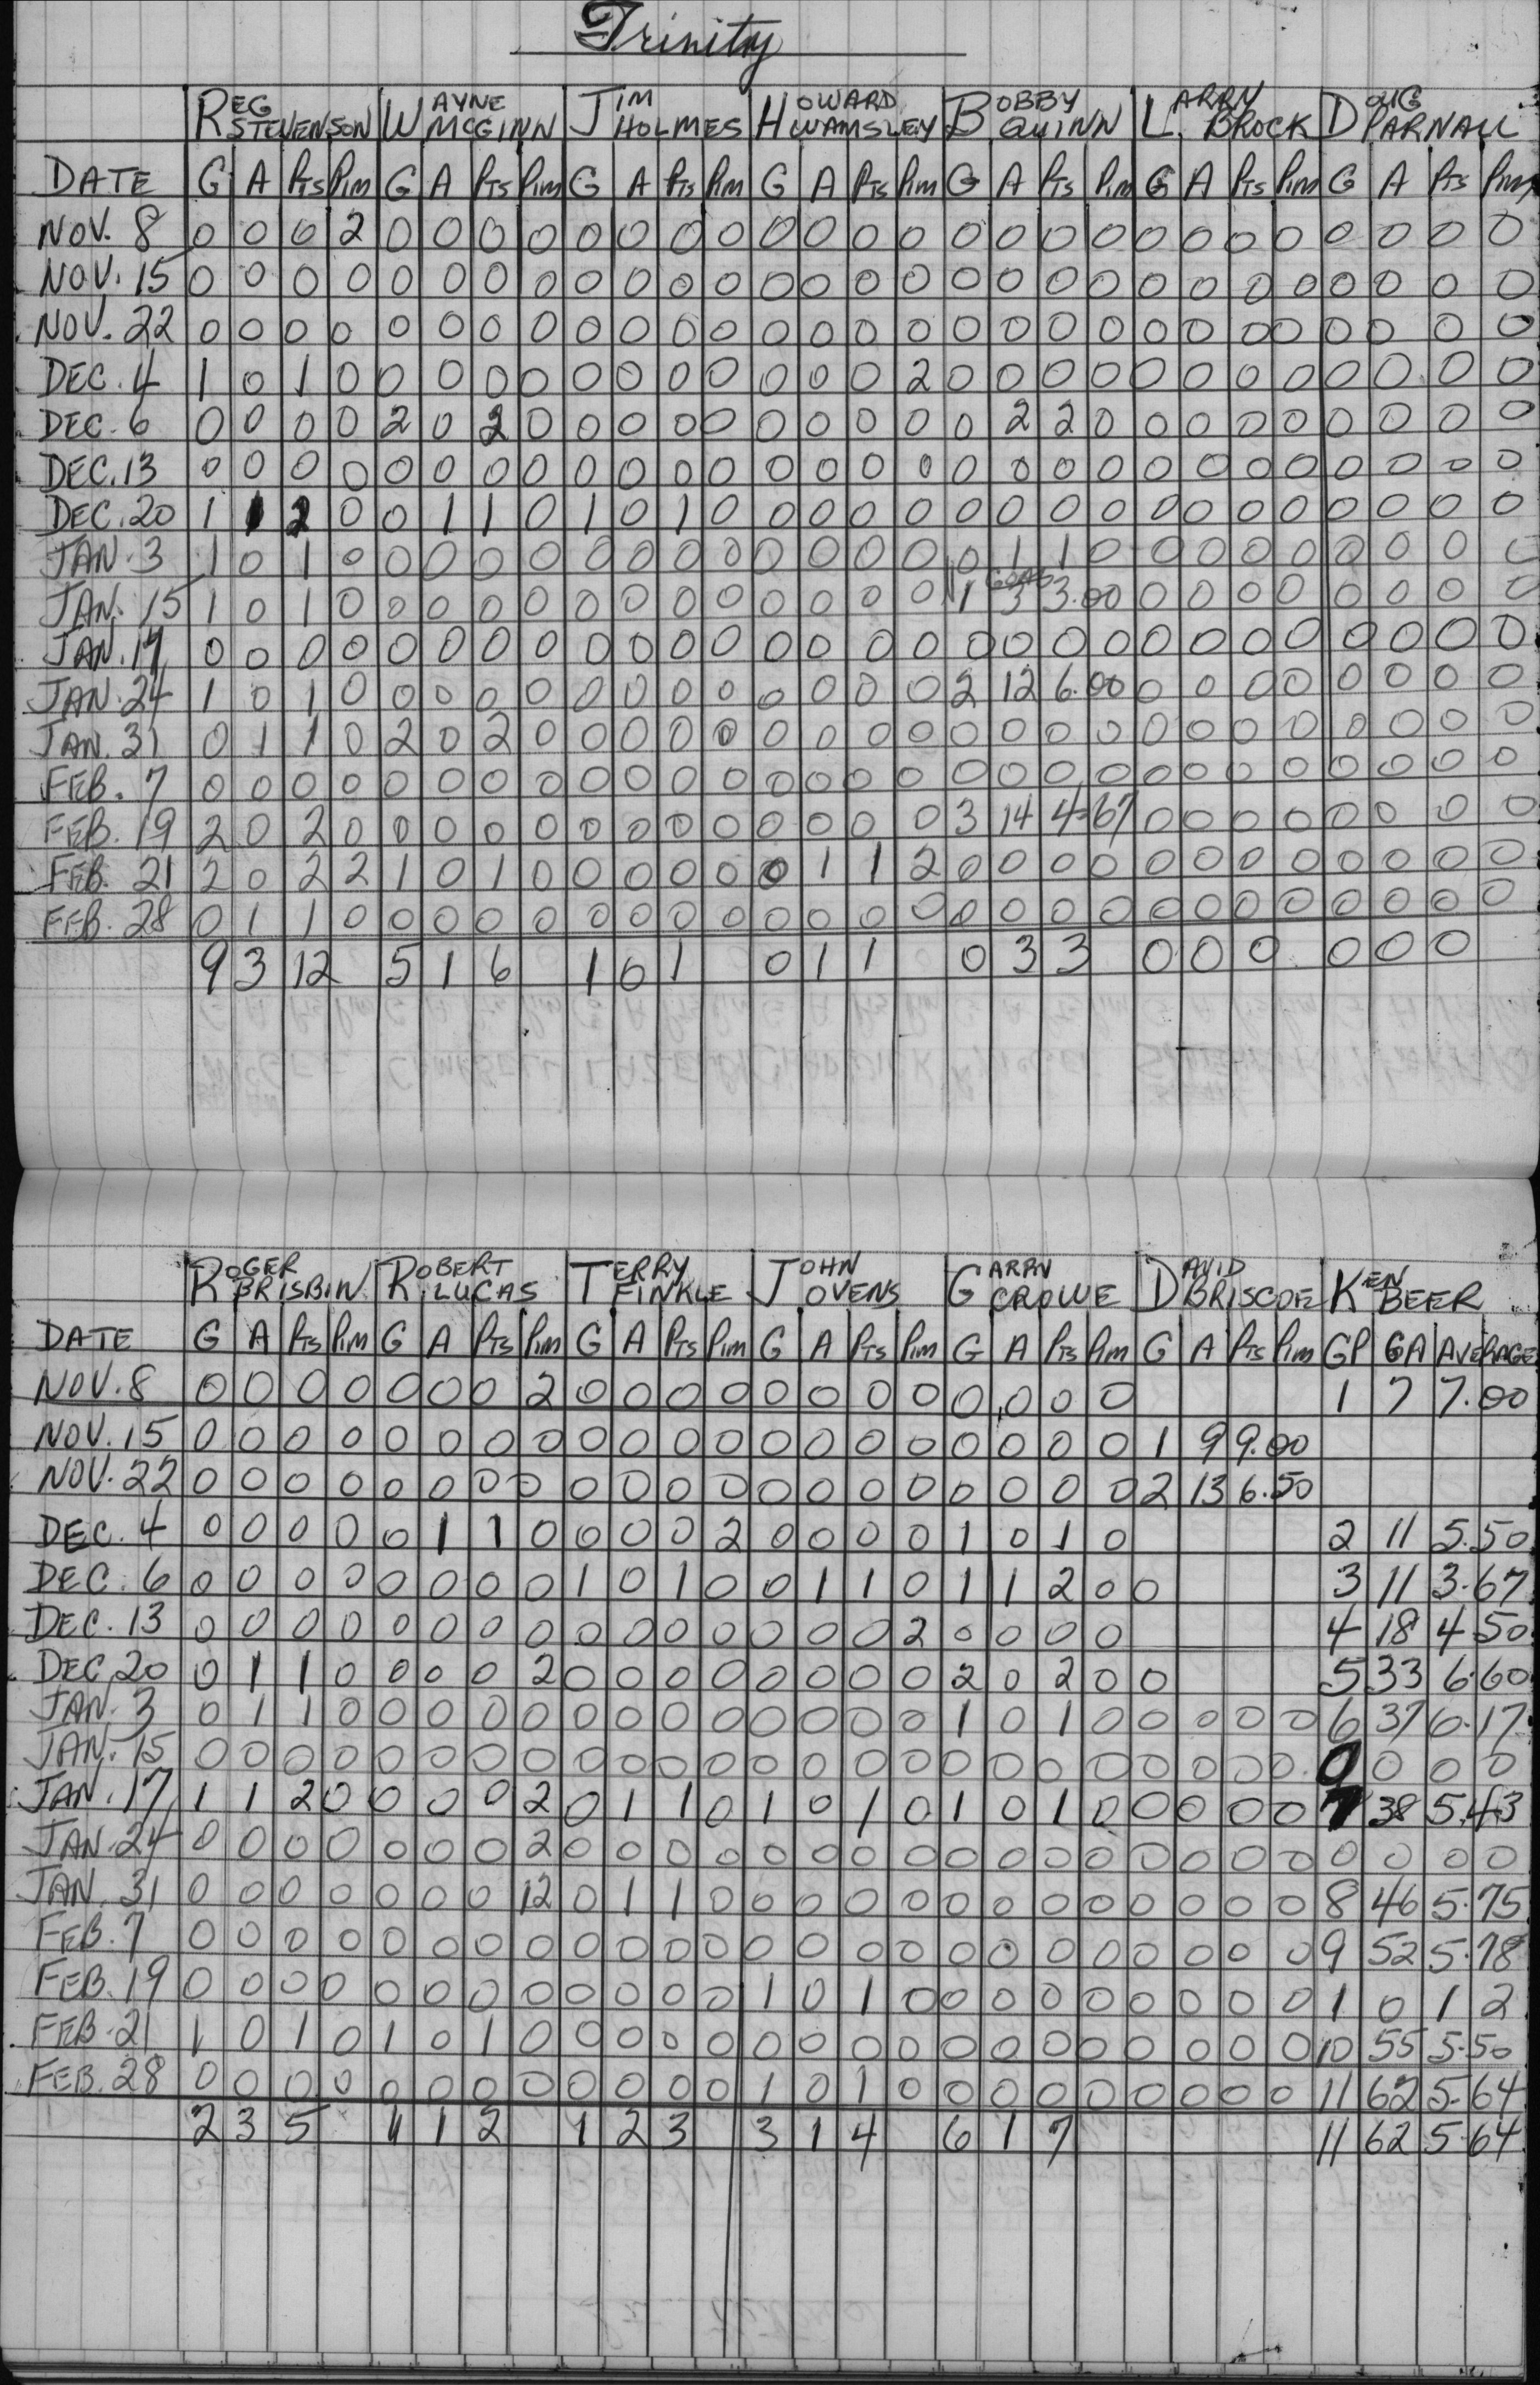 Trinity
REG STEVENSON WAYNE MCGINN JIM HOLMES HOWARD WAMSLEY BOBBY QUINN LARRY BROCK DOUG PARNALL
DATE G A Pts Pim G A Pts Pim G A Pts Pim G A Pts Pim G A Pts Pim G A Pts Pim G A Pts Pim
NOV. 8 0 0 0 2 0 0 0 0 0 0 0 0 0 0 0 0 0 0 0 0 0 0 0 0 0 0 0 0
NOV. 15 0 0 0 0 0 0 0 0 0 0 0 0 0 0 0 0 0 0 0 0 0 0 0 0 0 0 0 0
NOV. 22 0 0 0 0 0 0 0 0 0 0 0 0 0 0 0 0 0 0 0 0 0 0 0 0 0 0 0 0
DEC. 4 1 0 1 0 0 0 0 0 0 0 0 0 0 0 0 2 0 0 0 0 0 0 0 0 0 0 0 0
DEC. 6 0 0 0 0 2 0 2 0 0 0 0 0 0 0 0 0 0 2 2 0 0 0 0 0 0 0 0 0
DEC. 13 0 0 0 0 0 0 0 0 0 0 0 0 0 0 0 0 0 0 0 0 0 0 0 0 0 0 0 0
DEC. 20 1 1 2 0 0 1 1 0 1 0 1 0 0 0 0 0 0 0 0 0 0 0 0 0 0 0 0 0
JAN. 3 1 0 1 0 0 0 0 0 0 0 0 0 0 0 0 0 0 1 1 0 0 0 0 0 0 0 0 0
JAN. 15 1 0 1 0 0 0 0 0 0 0 0 0 0 0 0 0 1 3 3.00 0 0 0 0 0 0 0 0
JAN. 17 0 0 0 0 0 0 0 0 0 0 0 0 0 0 0 0 0 0 0 0 0 0 0 0 0 0 0 0
JAN. 24 1 0 1 0 0 0 0 0 0 0 0 0 0 0 0 0 2 12 6.00 0 0 0 0 0 0 0 0
JAN. 31 0 1 1 0 2 0 2 0 0 0 0 0 0 0 0 0 0 0 0 0 0 0 0 0 0 0 0 0
FEB. 7 0 0 0 0 0 0 0 0 0 0 0 0 0 0 0 0 0 0 0 0 0 0 0 0 0 0 0 0
FEB. 19 2 0 2 0 0 0 0 0 0 0 0 0 0 0 0 0 3 14 4.67 0 0 0 0 0 0 0 0
FEB. 21 2 0 2 2 1 0 1 0 0 0 0 0 0 1 1 2 0 0 0 0 0 0 0 0 0 0 0 0
FEB. 28 0 1 1 0 0 0 0 0 0 0 0 0 0 0 0 0 0 0 0 0 0 0 0 0 0 0 0 0
9 3 12 5 1 6 1 0 1 0 1 1 0 3 3 0 0 0 0 0 0
ROGER BRISBIN ROBERT LUCAS TERRY FINKLE JOHN OVENS GARRY CROWE DAVID BRISCOE KEN BEER
DATE G A Pts Pim G A Pts Pim G A Pts Pim G A Pts Pim G A Pts Pim G A Pts Pim GP GA AVERAGE
NOV. 8 0 0 0 0 0 0 0 2 0 0 0 0 0 0 0 0 0 0 0 0 1 7 7.00
NOV. 15 0 0 0 0 0 0 0 0 0 0 0 0 0 0 0 0 0 0 0 0 1 9 9.00
NOV. 22 0 0 0 0 0 0 0 0 0 0 0 0 0 0 0 0 0 0 0 0 2 13 6.50
DEC. 4 0 0 0 0 0 1 1 0 0 0 0 2 0 0 0 0 1 0 1 0 2 11 5.50
DEC. 6 0 0 0 0 0 0 0 0 1 0 1 0 0 1 1 0 1 1 2 0 0 3 11 3.67
DEC. 13 0 0 0 0 0 0 0 0 0 0 0 0 0 0 0 2 0 0 0 0 4 18 4.50
DEC. 20 0 1 1 0 0 0 0 2 0 0 0 0 0 0 0 0 2 0 2 0 0 5 33 6.60
JAN. 3 0 1 1 0 0 0 0 0 0 0 0 0 0 0 0 0 1 0 1 0 0 0 0 0 6 37 6.17
JAN. 15 0 0 0 0 0 0 0 0 0 0 0 0 0 0 0 0 0 0 0 0 0 0 0 0 0 0 0 0
JAN. 17 1 1 2 0 0 0 0 2 0 1 1 0 1 0 1 0 1 0 1 0 0 0 0 0 7 38 5.43
JAN. 24 0 0 0 0 0 0 0 2 0 0 0 0 0 0 0 0 0 0 0 0 0 0 0 0 0 0 0 0
JAN. 31 0 0 0 0 0 0 0 12 0 1 1 0 0 0 0 0 0 0 0 0 0 0 0 0 8 46 5.75
FEB. 7 0 0 0 0 0 0 0 0 0 0 0 0 0 0 0 0 0 0 0 0 0 0 0 0 9 52 5.78
FEB. 19 0 0 0 0 0 0 0 0 0 0 0 0 1 0 1 0 0 0 0 0 0 0 0 0 1 0 1 2
FEB. 21 1 0 1 0 1 0 1 0 0 0 0 0 0 0 0 0 0 0 0 0 0 0 0 0 10 55 5.50
FEB. 28 0 0 0 0 0 0 0 0 0 0 0 0 1 0 1 0 0 0 0 0 0 0 0 0 11 62 5.64
2 3 5 1 1 2 1 2 3 3 1 4 6 1 7 11 62 5.64